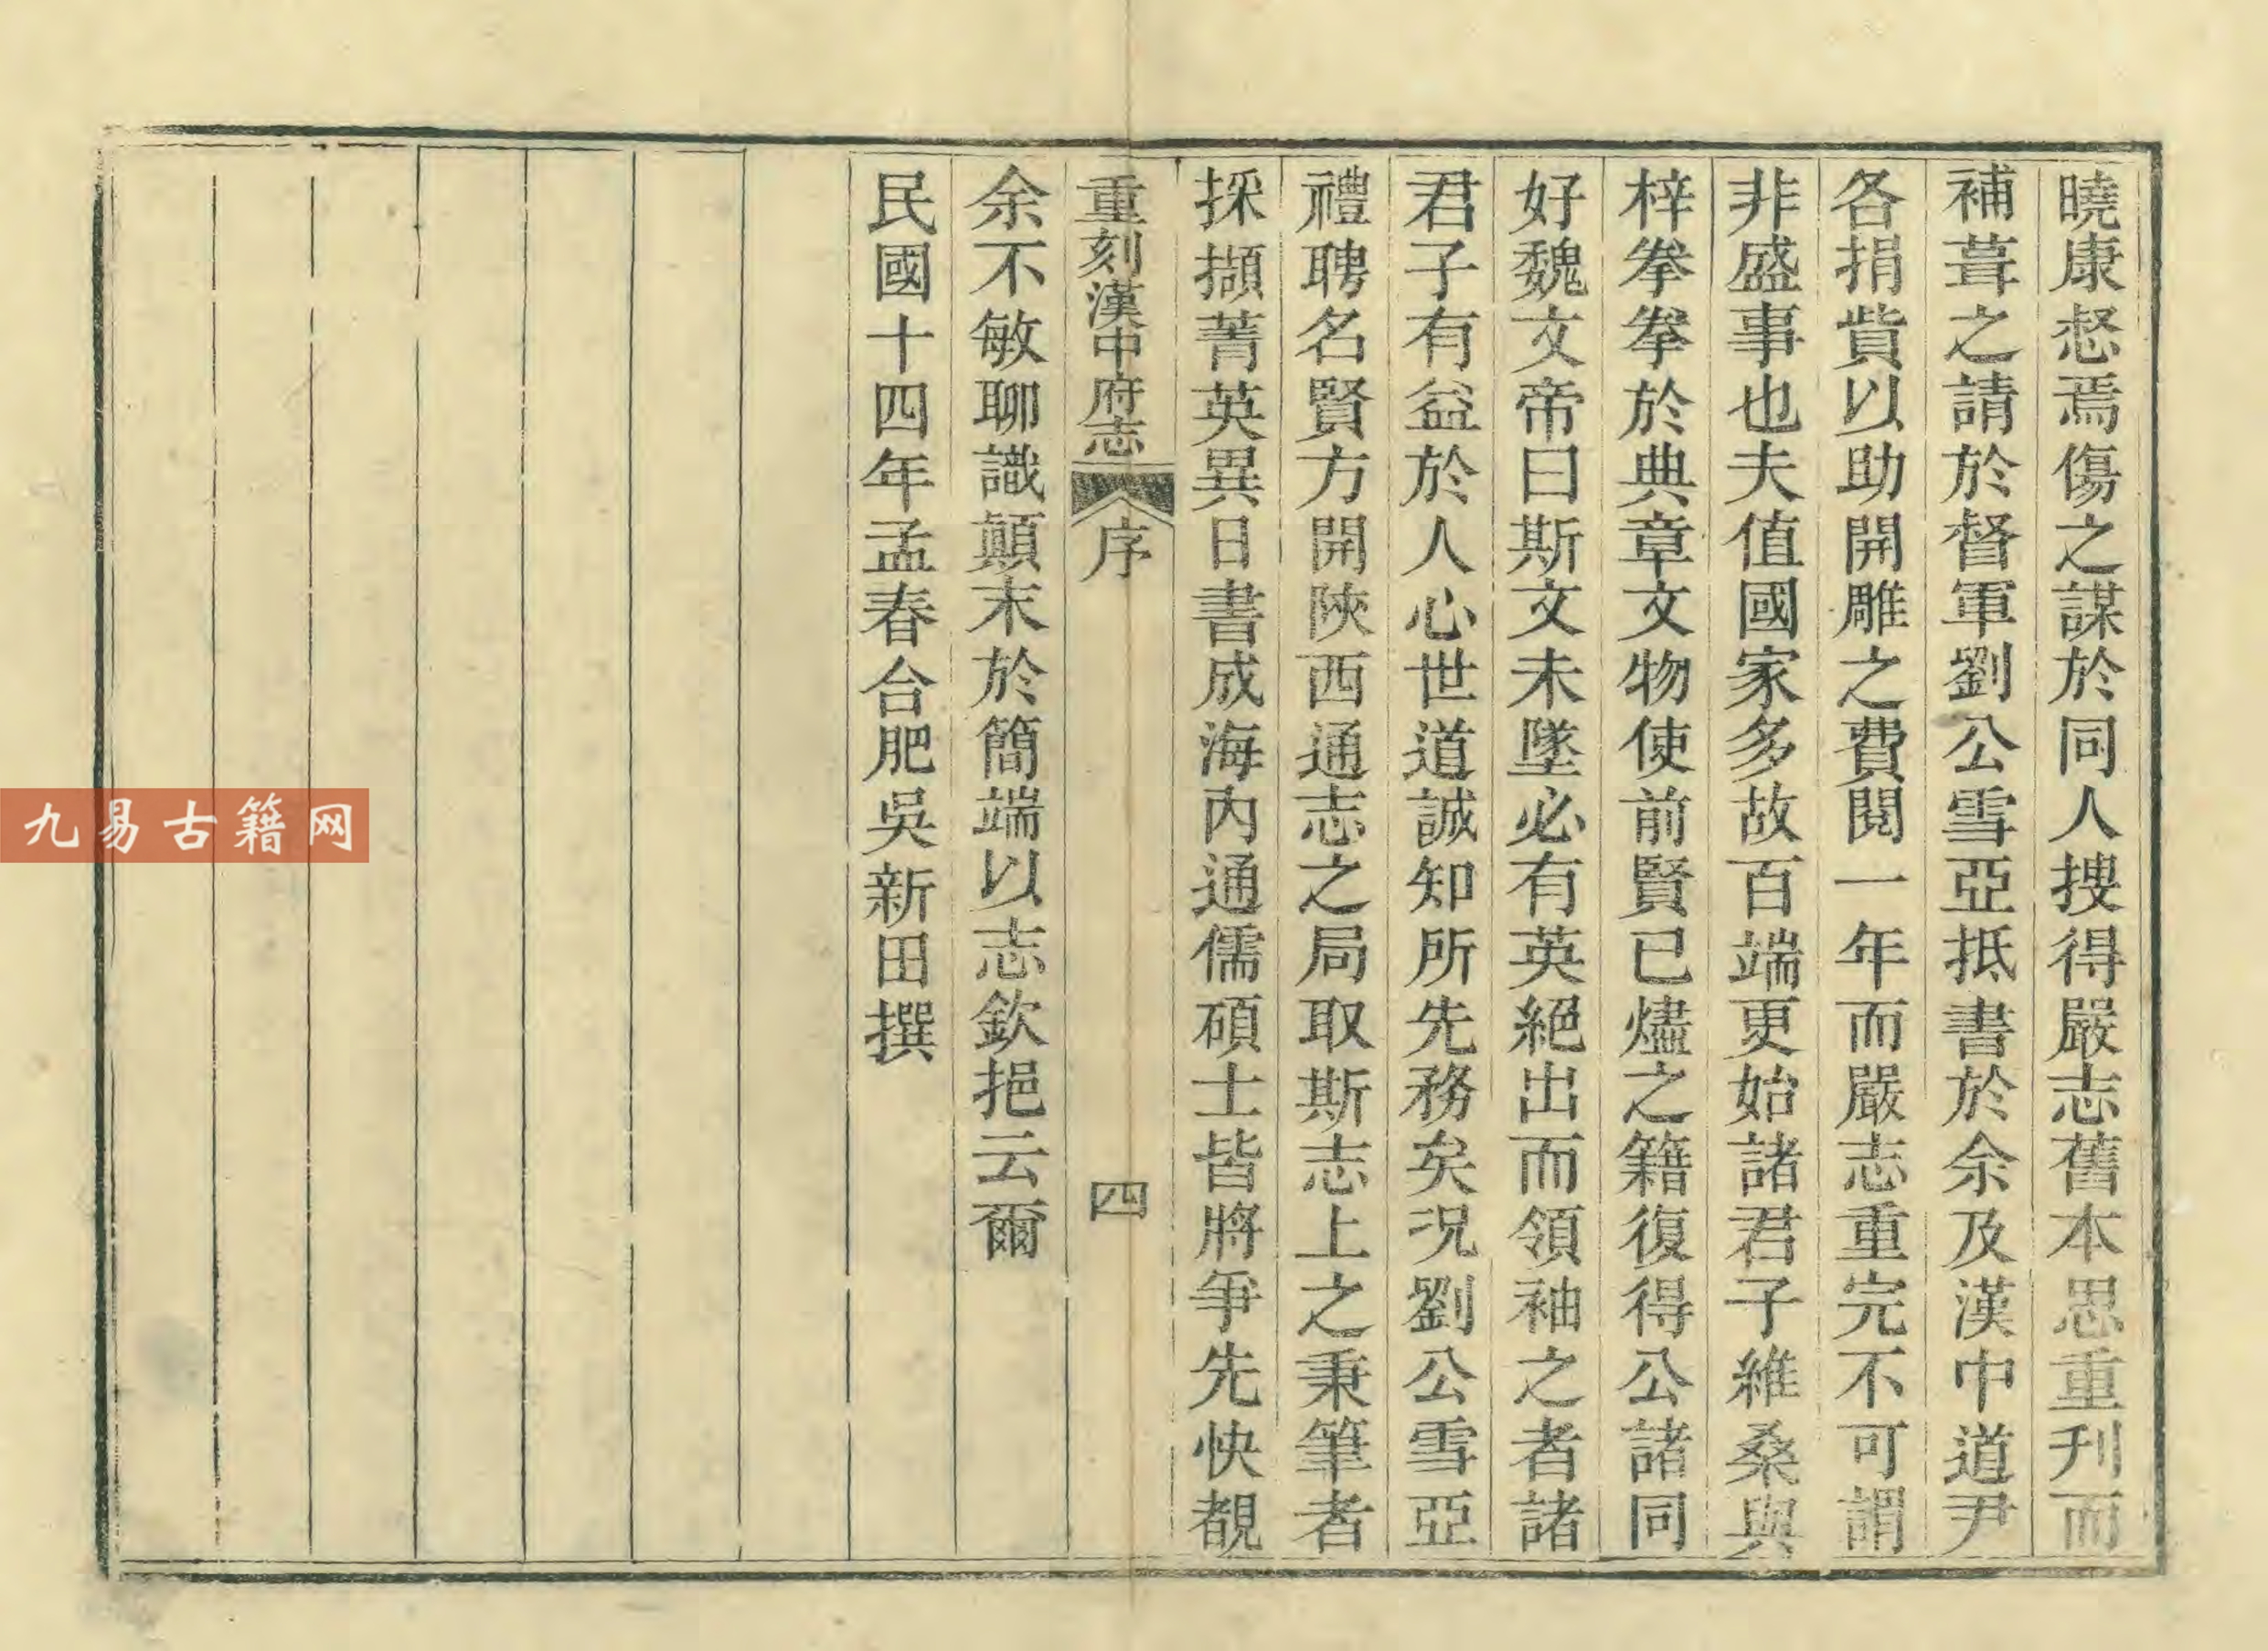 曉康惄焉傷之謀於同人搜得嚴志舊本思重刋而
補葺之請於督軍劉公雪亞抵書於余及漢中道尹
各捐貲以助開雕之費閱一年而嚴志重完不可謂
非盛事也夫值國家多故百端更始諸君子維桑與
梓拳拳於典章文物使前賢已燼之籍復得公諸同
好魏文帝曰斯文未墜必有英絕出而領袖之者諸
君子有益於人心世道誠知所先務矣況劉公雪亞
禮聘名賢方開陝西通志之局取斯志上之秉筆者
採擷菁英異日書成海內通儒碩士皆將爭先快覩
重刻漢中府志 序 四
余不敏聊識顛末於簡端以志欽挹云爾
民國十四年孟春合肥吳新田撰
九易古籍网